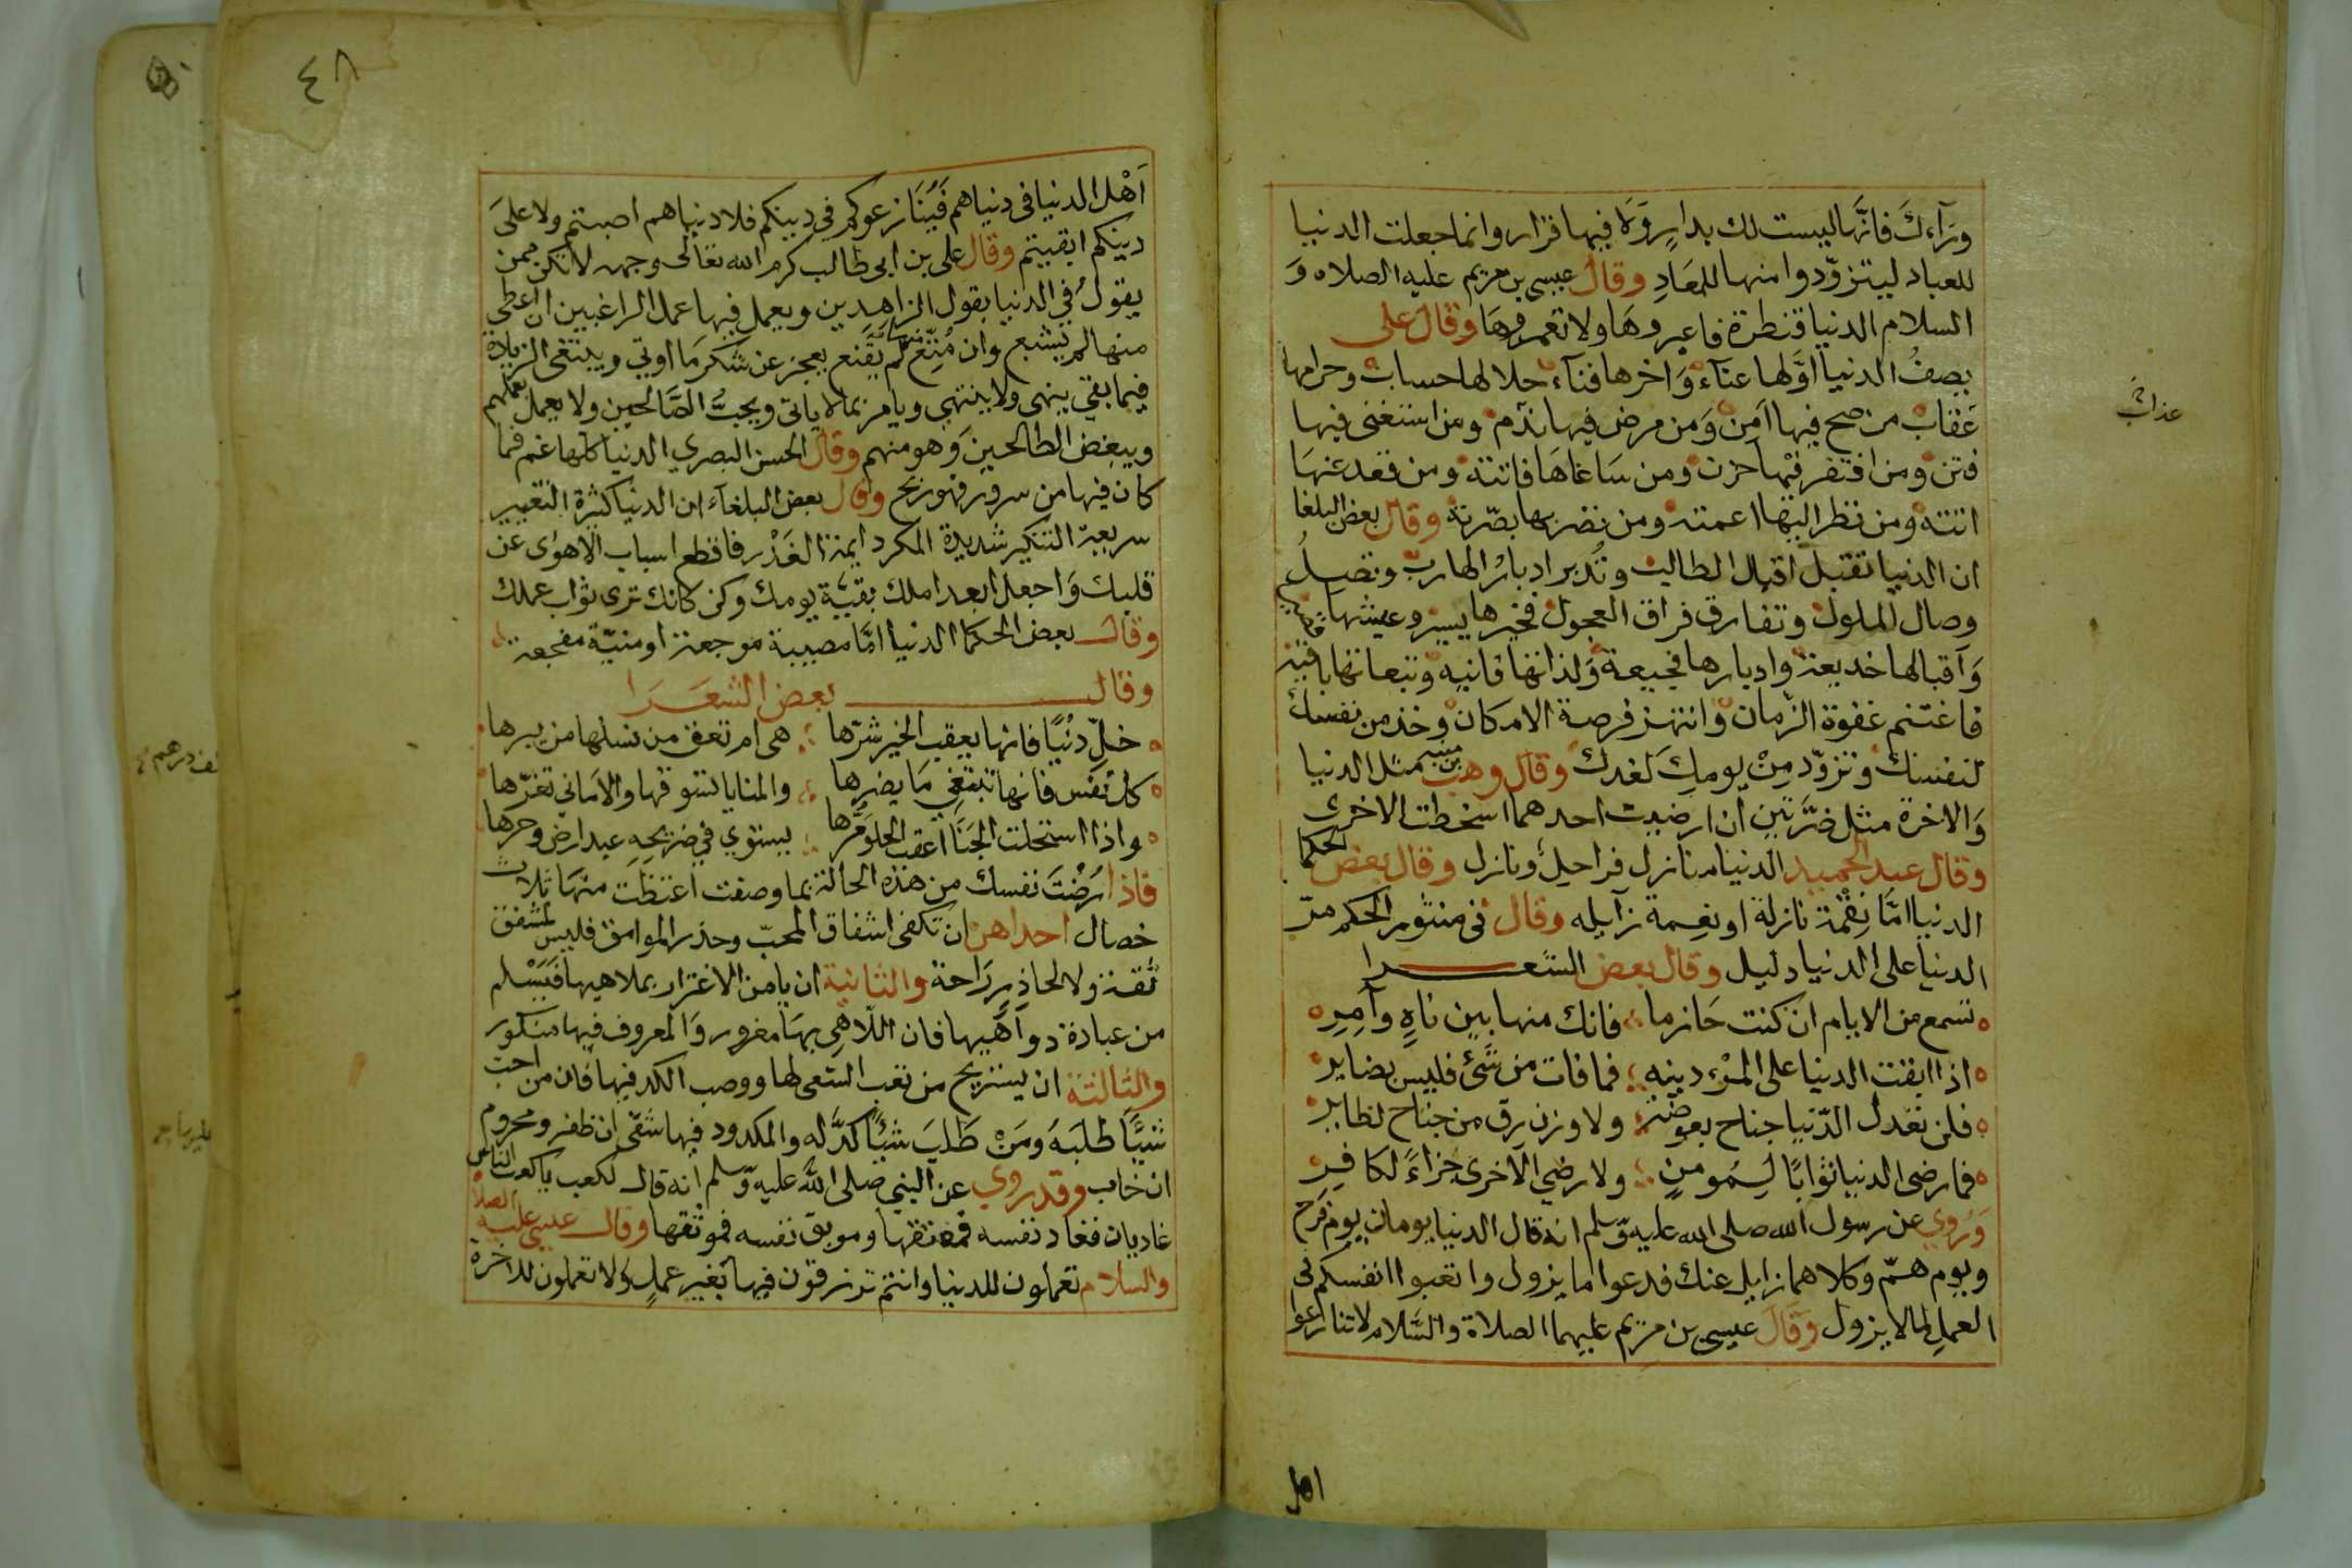 ورآءك فانها ليست لك بدار ولا فيها قرار وانما جعلت الدنيا
للعباد ليتزودوا منها للمعاد وقال عيسى بن مريم عليه الصلاه و
السلام الدنيا قنطرة فاعبروها ولا تعمروها وقال على
يصف الدنيا اولها عنآء واخرها فنآء حلالها حساب وحرامها
عقاب من صح فيها امن ومن مرض فيها ندم ومن استغنى فيها
عذاب
فتن ومن افتقر فيها حزن ومن ساعاها فاتته ومن قعد عنها
اتته ومن نظر اليها اعمته ومن نظر بها بصرته وقال بعض البلغا
ان الدنيا تقبل اقبال الطالب وتدبر ادبار الهارب وتصل
وصال الملول وتفارق فراق العجول فخيرها يسير وعيشها قصير
واقبالها خديعة وادبارها فجيعة ولذاتها فانيه وتبعاتها باقية
فاغتنم غفوة الزمان وانتهز فرصة الامكان وخذ من نفسك
لنفسك وتزود من يومك لغدك وقال وهب بن منبه مثل الدنيا
والاخرة مثل ضرتين ان ارضيت احدهما اسخطت الاخرى
وقال عبد الحميد الدنيا منازل فراحل ونازل وقال بعض الحكما
الدنيا اما نقمة نازلة او نعمة زايله وقال في منثور الحكم مر
الدنيا على الدنيا دليل وقال بعض الشعرا
تسمع من الايام ان كنت حازما فانك منها بين ناه وآمر
اذا ابقت الدنيا على المرء دينه فما فات من شئ فليس بضاير
فلن تعدل الدنيا جناح بعوضة ولا وزن رق من جناح لطاير
فما رضى الدنيا ثوابا لمومن ولا رضي الاخرى جزاء لكافر
وروي عن رسول الله صلى الله عليه وسلم انه قال الدنيا يومان يوم فرح
ويوم هم وكلاهما زايل عنك فدعوا ما يزول واتعبوا انفسكم في
العمل لما لا يزول وقال عيسى بن مريم عليهما الصلاة والسلام لا تنازعوا
اهل
٤٨
اهل الدنيا في دنياهم فينازعوكم في دينكم فلا دنياهم اصبتم ولا على
دينكم ابقيتم وقال على بن ابى طالب كرم الله تعالى وجهه لا تكن ممن
يقول في الدنيا بقول الزاهدين ويعمل فيها عمل الراغبين ان اعطى
منها لم يشبع وان منع منها لم يقنع يعجز عن شكر ما اوتي ويبتغى الزيادة
فيما بقي ينهى ولا ينتهي ويامر بما لا ياتى ويحب الصالحين ولا يعمل بعملهم
ويبغض الطالحين وهو منهم وقال الحسن البصري الدنيا كلها غم فما
كان فيها من سرور فهو ربح وقال بعض البلغآء ان الدنيا كثيرة التغيير
سريعة التنكير شديدة المكر دايمة الغدر فاقطع اسباب الاهوى عن
قلبك واجعل ابعد املك بقية يومك وكن كانك ترى ثواب عملك
وقال بعض الحكما الدنيا اما مصيبة موجعة او منية مفجعة
وقال بعض الشعرا
خل دنيا فانها يعقب الخير شرها هى ام تعق من نسلها من يبرها
كل نفس فانها تبتغي ما يضرها والمنايا تسوقها والاماني تغرها
واذا استحلت الجنا اعقب الحلو مرها يستوي في ضريحه عبد ارض وحرها
فاذا رضت نفسك من هذه الحالة بما وصفت اعتظت منها ثلاث
خصال احداهن ان تكفى اشفاق المحب وحذر الوامق فليس لمشفق
ثقة ولا لحاذر راحة والثانية ان يامن الاغترار بملاهيها فيسلم
من عبادة دواهيها فان اللاهي بها مغرور والمعروف فيها منكور
والثالثة ان يستريح من تعب السعى لها ووصب الكد فيها فان من احب
شيئا طلبه ومن طلب شيئا كد له والمكدود فيها شقى ان ظفر ومحروم
ان خاب وقد روي عن النبي صلى الله عليه وسلم انه قال لكعب ياكعب الناس
غاديان فغاد نفسه فمعتقها وموبق نفسه فموثقها وقال عيسى عليه الصلا
والسلام تعملون للدنيا وانتم ترزقون فيها بغير عمل ولا تعملون للاخرة